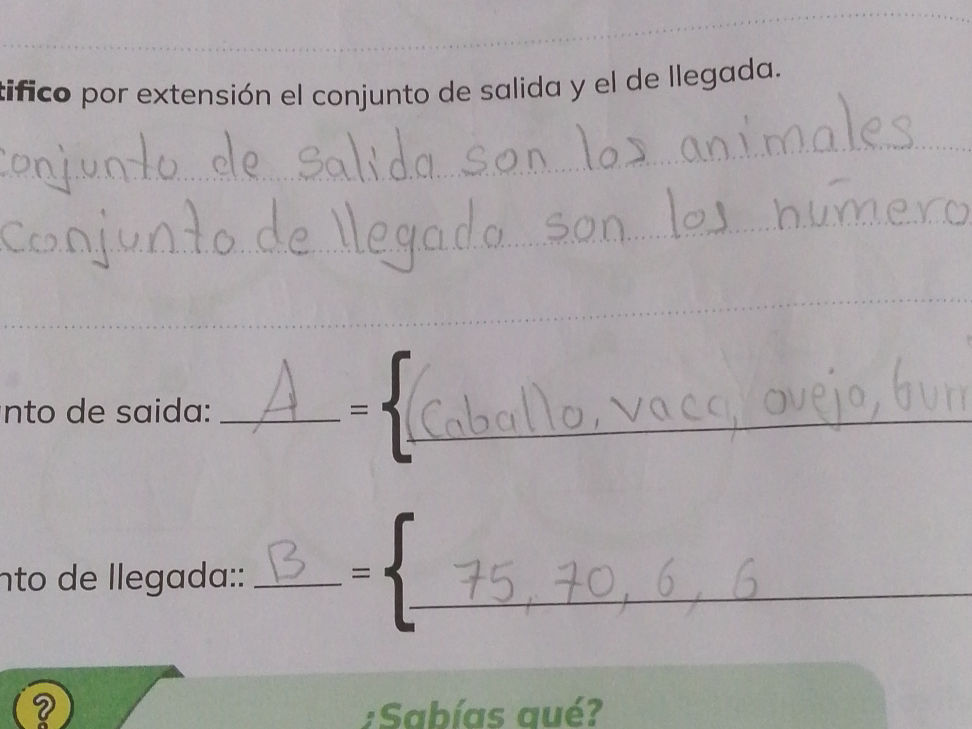 tifico por extensión el conjunto de salida y el de llegada.
conjunto de salida son los animales
conjunto de llegada son los número
nto de saida: A = { (Caballo, vaca, ovejo, burr
nto de llegada:: B = { 75, 70, 6, 6
¿Sabías qué?